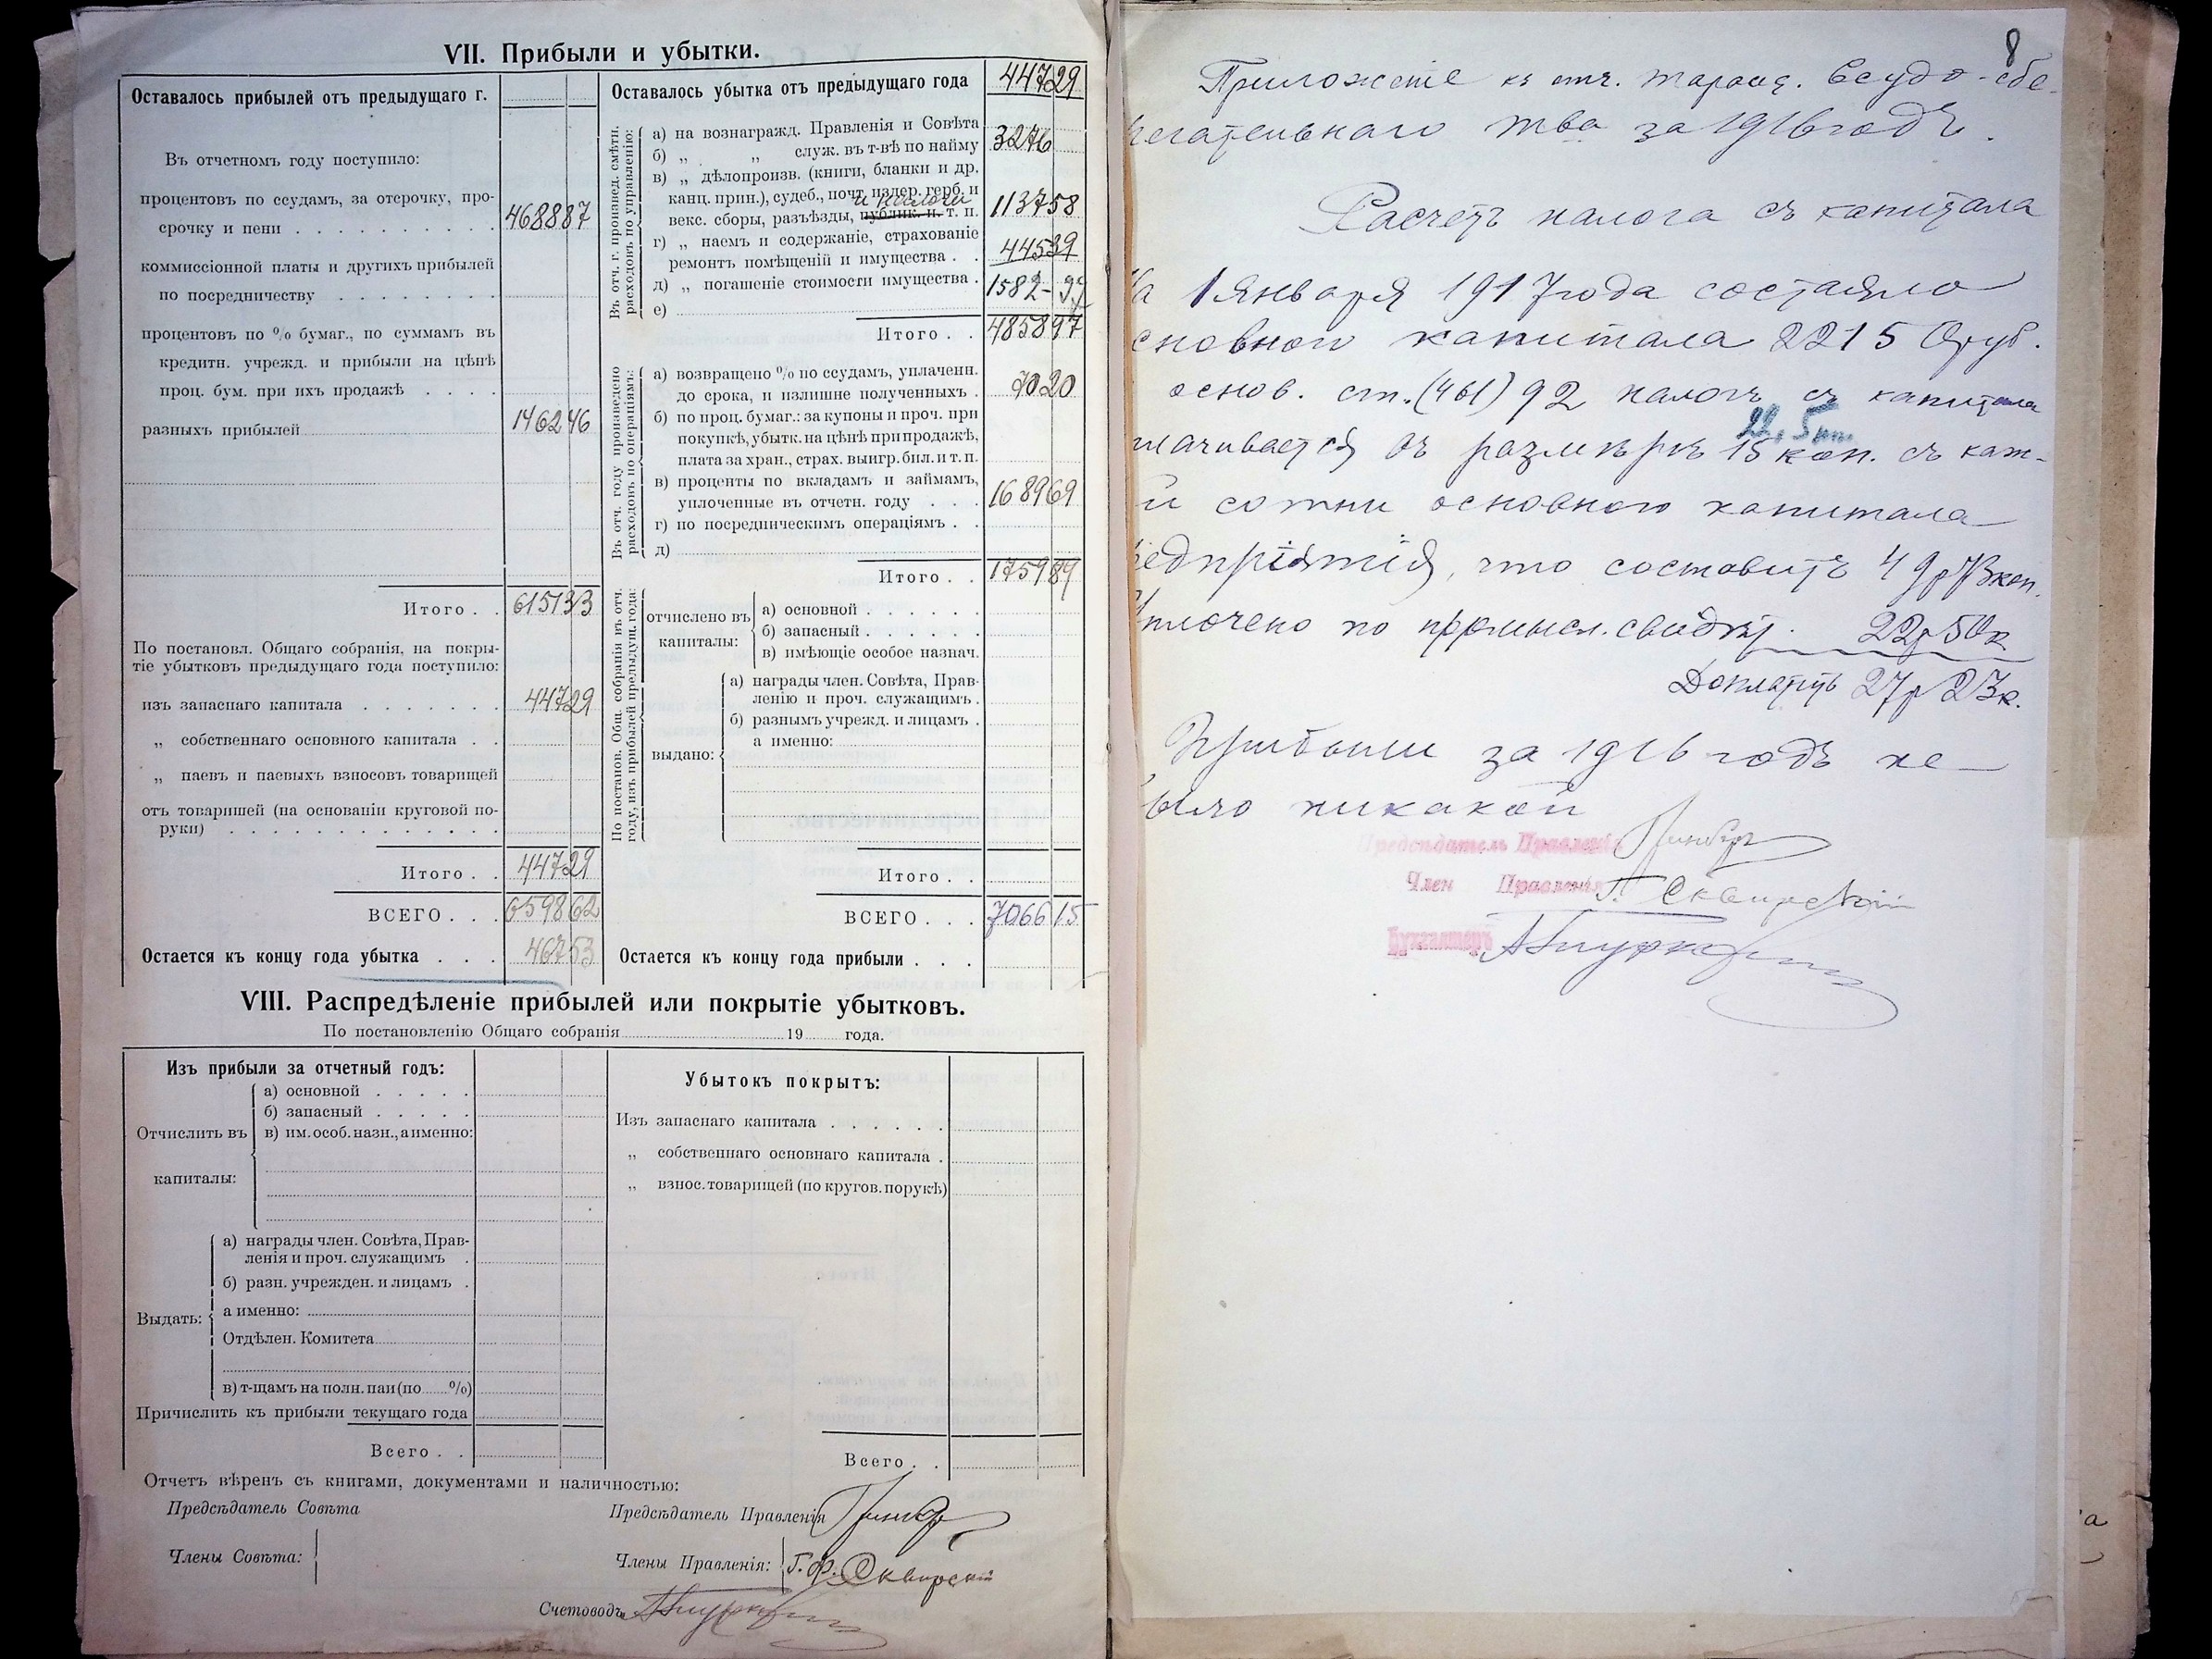 VII. Прибыли и убытки.
Оставалось прибылей отъ предыдущаго г.
Въ отчетномъ году поступило:
процентовъ по ссудамъ, за отсрочку, про-
срочку и пени . . . . . . . . . . 4688 87
коммиссіонной платы и другихъ прибылей
по посредничеству . . . . . . . .
процентовъ по % бумаг., по суммамъ въ
кредитн. учрежд. и прибыли на цѣнѣ
проц. бум. при ихъ продажѣ . . . .
разныхъ прибылей 1462 46
Итого . . 6151 33
По постановл. Общаго собранія, на покры-
тіе убытковъ предыдущаго года поступило:
изъ запаснаго капитала . . . . . . . 447 29
„ собственнаго основного капитала . .
„ паевъ и паевыхъ взносовъ товарищей
отъ товарищей (на основаніи круговой по-
руки) . . . . . . . . . . . . .
Итого . . 447 29
ВСЕГО . . . 6598 62
Остается къ концу года убытка . . . 467 53
Оставалось убытка отъ предыдущаго года 447 29
Въ отч. г. произвед. смѣтн.
расходовъ по управленію:
а) на вознагражд. Правленія и Совѣта
б) „ „ служ. въ т-вѣ по найму 3276
в) „ дѣлопроизв. (книги, бланки и др.
канц. прин.), судеб., почт. издер. герб. и
и налоги
векс. сборы, разъѣзды, публик. и. т. п. 1137 58
г) „ наемъ и содержаніе, страхованіе
ремонтъ помѣщеній и имущества . . 445 39
д) „ погашеніе стоимости имущества .
е)
Итого . . 4858 97
Въ отч. году произведено
расходовъ по операціямъ:
а) возвращено % по ссудамъ, уплаченн.
до срока, и излишне полученныхъ . 70 20
б) по проц. бумаг.: за купоны и проч. при
покупкѣ, убытк. на цѣнѣ при продажѣ,
плата за хран., страх. выигр. бил. и т. п.
в) проценты по вкладамъ и займамъ,
уплоченные въ отчетн. году . . . 1689 69
г) по посредническимъ операціямъ . .
д)
Итого . . 1759 89
По постанов. Общ. собранія въ отч.
году, изъ прибылей предыдущ. года:
отчислено въ
капиталы:
а) основной . . . . . .
б) запасный . . . . . .
в) имѣющіе особое назнач.
выдано:
а) награды член. Совѣта, Прав-
ленію и проч. служащимъ .
б) разнымъ учрежд. и лицамъ .
а именно:
Итого . .
ВСЕГО . . . 7066 15
Остается къ концу года прибыли . . .
VIII. Распредѣленіе прибылей или покрытіе убытковъ.
По постановленію Общаго собранія 19 года.
Изъ прибыли за отчетный годъ:
Отчислить въ
капиталы:
а) основной . . . . .
б) запасный . . . . .
в) им. особ. назн., а именно:
Выдать:
а) награды член. Совѣта, Прав-
ленія и проч. служащимъ .
б) разн. учрежден. и лицамъ .
а именно:
Отдѣлен. Комитета
в) т-щамъ на полн. паи (по %)
Причислить къ прибыли текущаго года
Всего . .
Убытокъ покрытъ:
Изъ запаснаго капитала . . . . . .
„ собственнаго основнаго капитала .
„ взнос. товарищей (по кругов. порукѣ)
Всего . .
Отчетъ вѣренъ съ книгами, документами и наличностью:
Предсѣдатель Совѣта
Члены Совѣта:
Предсѣдатель Правленія
Члены Правленія: Г. Ф. Сквирскій
Счетоводъ
8
Приложеніе къ отч. Таращ. Ссудо-сбе-
регательнаго т-ва за 1916 годъ.
Расчетъ налога съ капитала
На 1 Января 1917 года состояло
сновного капитала 22150 руб.
основ. ст. (461) 92 налогъ съ капитала
22,5 кп.
плачивается въ размѣрѣ 15 коп. съ каж-
й сотни основного капитала
редпріятія, что составитъ 49 р 73 коп.
Уплочено по промысл. свидѣт. 22 р 50 к
Доплатить 27 р 23 к.
Прибыли за 1916 годъ не
было никакой
Предсѣдатель Правленія
Член Правленія Г. Сквирскій
Бухгалтеръ